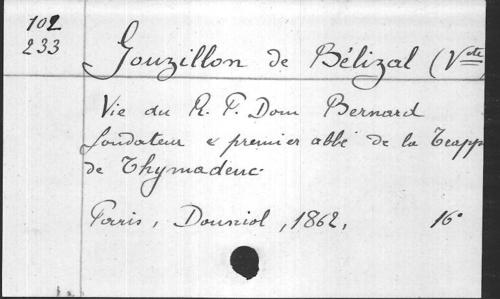 102
233
Gouzillon de Bélizal (Vcte
Vie du R. P. Dom Bernard
fondateur & premier abbé de la Trapp
de Thymadeuc.
Paris, Douniol, 1862, 16°